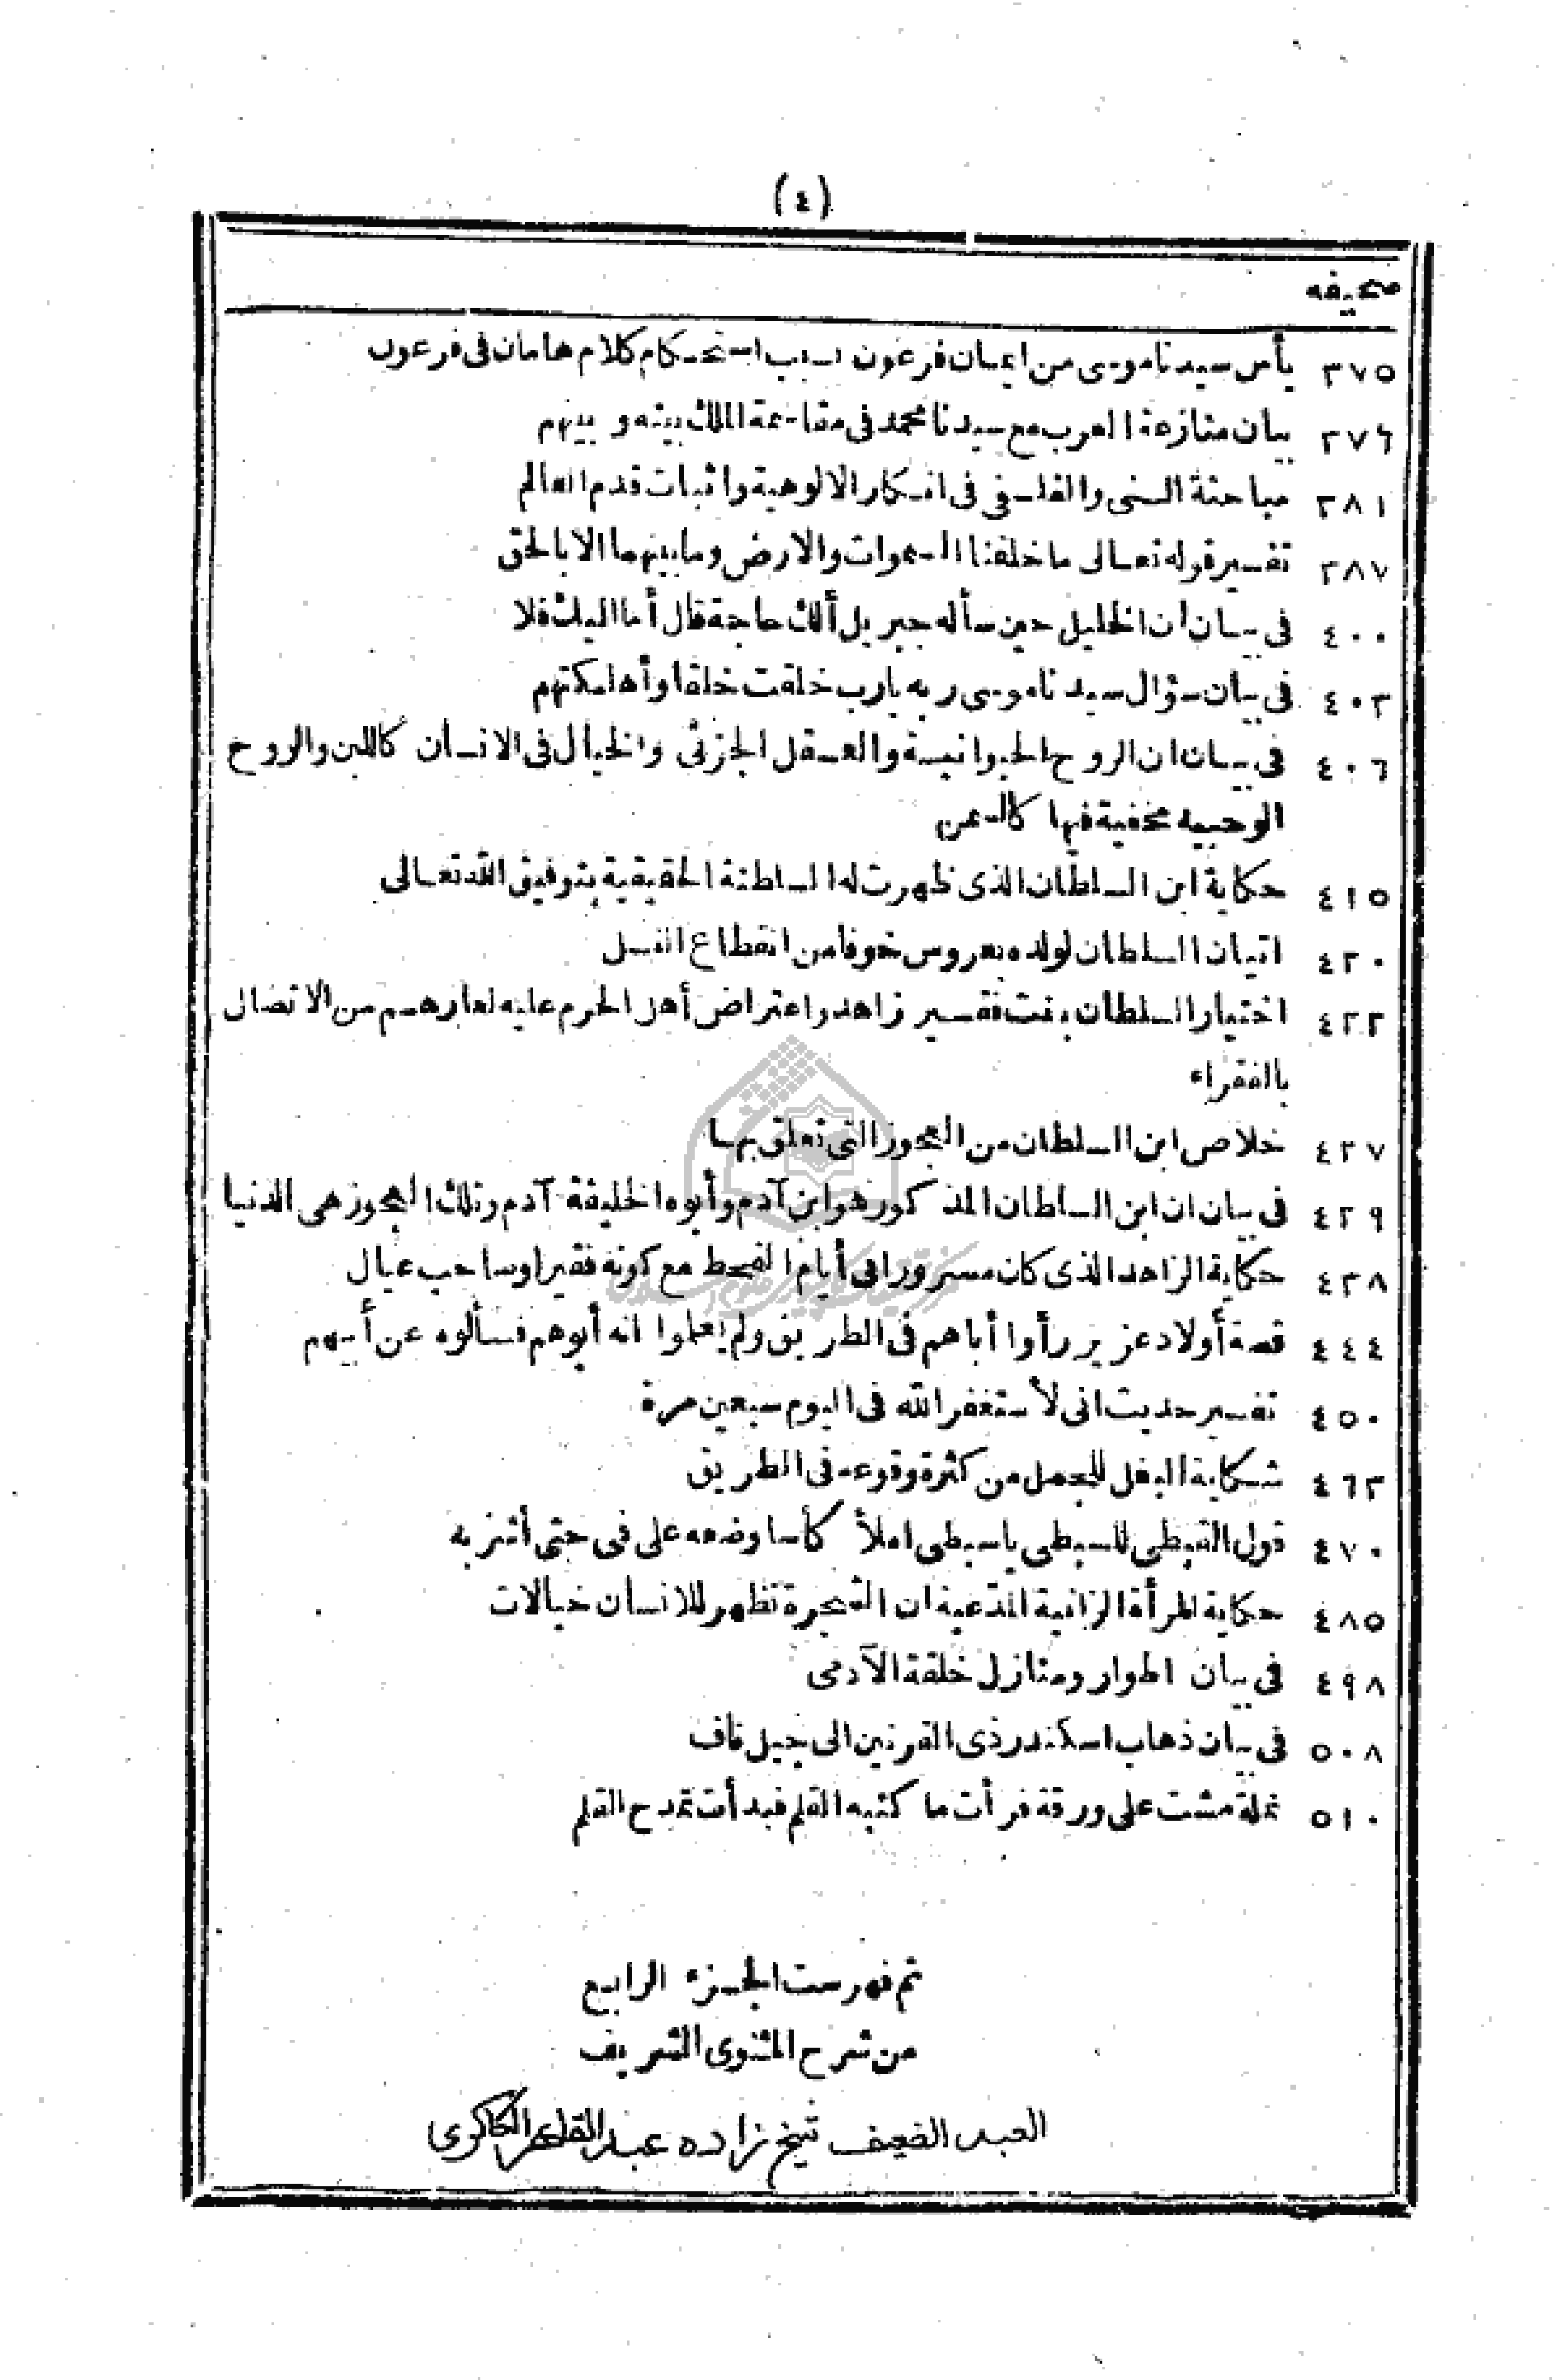 (٤)
صحيفه
٣٧٥ يأس سيدنا موسى من ايمان فرعون بسبب استحكام كلام هامان فى فرعون
٣٧٦ بيان منازعة العرب مع سيدنا محمد فى مقاسمة الملك بينه وبينهم
٣٨١ مباحثة السنى والفلسفى فى انكار الالوهية واثبات قدم العالم
٣٨٧ تفسير قوله تعالى ما خلقنا السموات والارض وما بينهما الا بالحق
٤٠٠ فى بيان ان الخليل حين سأله جبريل ألك حاجة قال أما اليك فلا
٤٠٣ فى بيان سؤال سيدنا موسى ربه يا رب خلقت خلقا وأهلكتهم
٤٠٦ فى بيان ان الروح الحيوانية والعقل الجزئى والخيال فى الانسان كاللبن والروح
الوحييه مخفية فيها كالسمن
٤١٥ حكاية ابن السلطان الذى ظهرت له السلطنة الحقيقية بتوفيق الله تعالى
٤٢٠ اتيان السلطان لولده بعروس خوفا من انقطاع النسل
٤٢٢ اختيار السلطان بنت فقير زاهد واعتراض أهل الحرم عليه لعارهم من الاتصال
بالفقراء
٤٢٧ خلاص ابن السلطان من العجوز التى تعلق بها
٤٢٩ فى بيان ان ابن السلطان المذكور هو ابن آدم وأبوه الخليفة آدم وتلك العجوز هى الدنيا
٤٣٨ حكاية الزاهد الذى كان مسرورا فى أيام القحط مع كونه فقيرا وصاحب عيال
٤٤٤ قصة أولاد عزير رأوا أباهم فى الطريق ولم يعلموا انه أبوهم فسألوه عن أبيهم
٤٥٠ تفسير حديث انى لأستغفر الله فى اليوم سبعين مرة
٤٦٣ شكاية البغل للجمل من كثرة وقوعه فى الطريق
٤٧٠ قول القبطى للسبطى يا سبطى املأ كأسا وضعه على فى حتى أشربه
٤٨٥ حكاية المرأة الزانية المدعية ان الشجرة تظهر للانسان خيالات
٤٩٨ فى بيان اطوار ومنازل خلقة الآدمى
٥٠٨ فى بيان ذهاب اسكندر ذى القرنين الى جبل قاف
٥١٠ نملة مشت على ورقة فرأت ما كتبه القلم فبدأت تمدح القلم
تم فهرست الجزء الرابع
من شرح المثنوى الشريف
العبد الضعيف شيخ زاده عبد القاهر الكاكوى